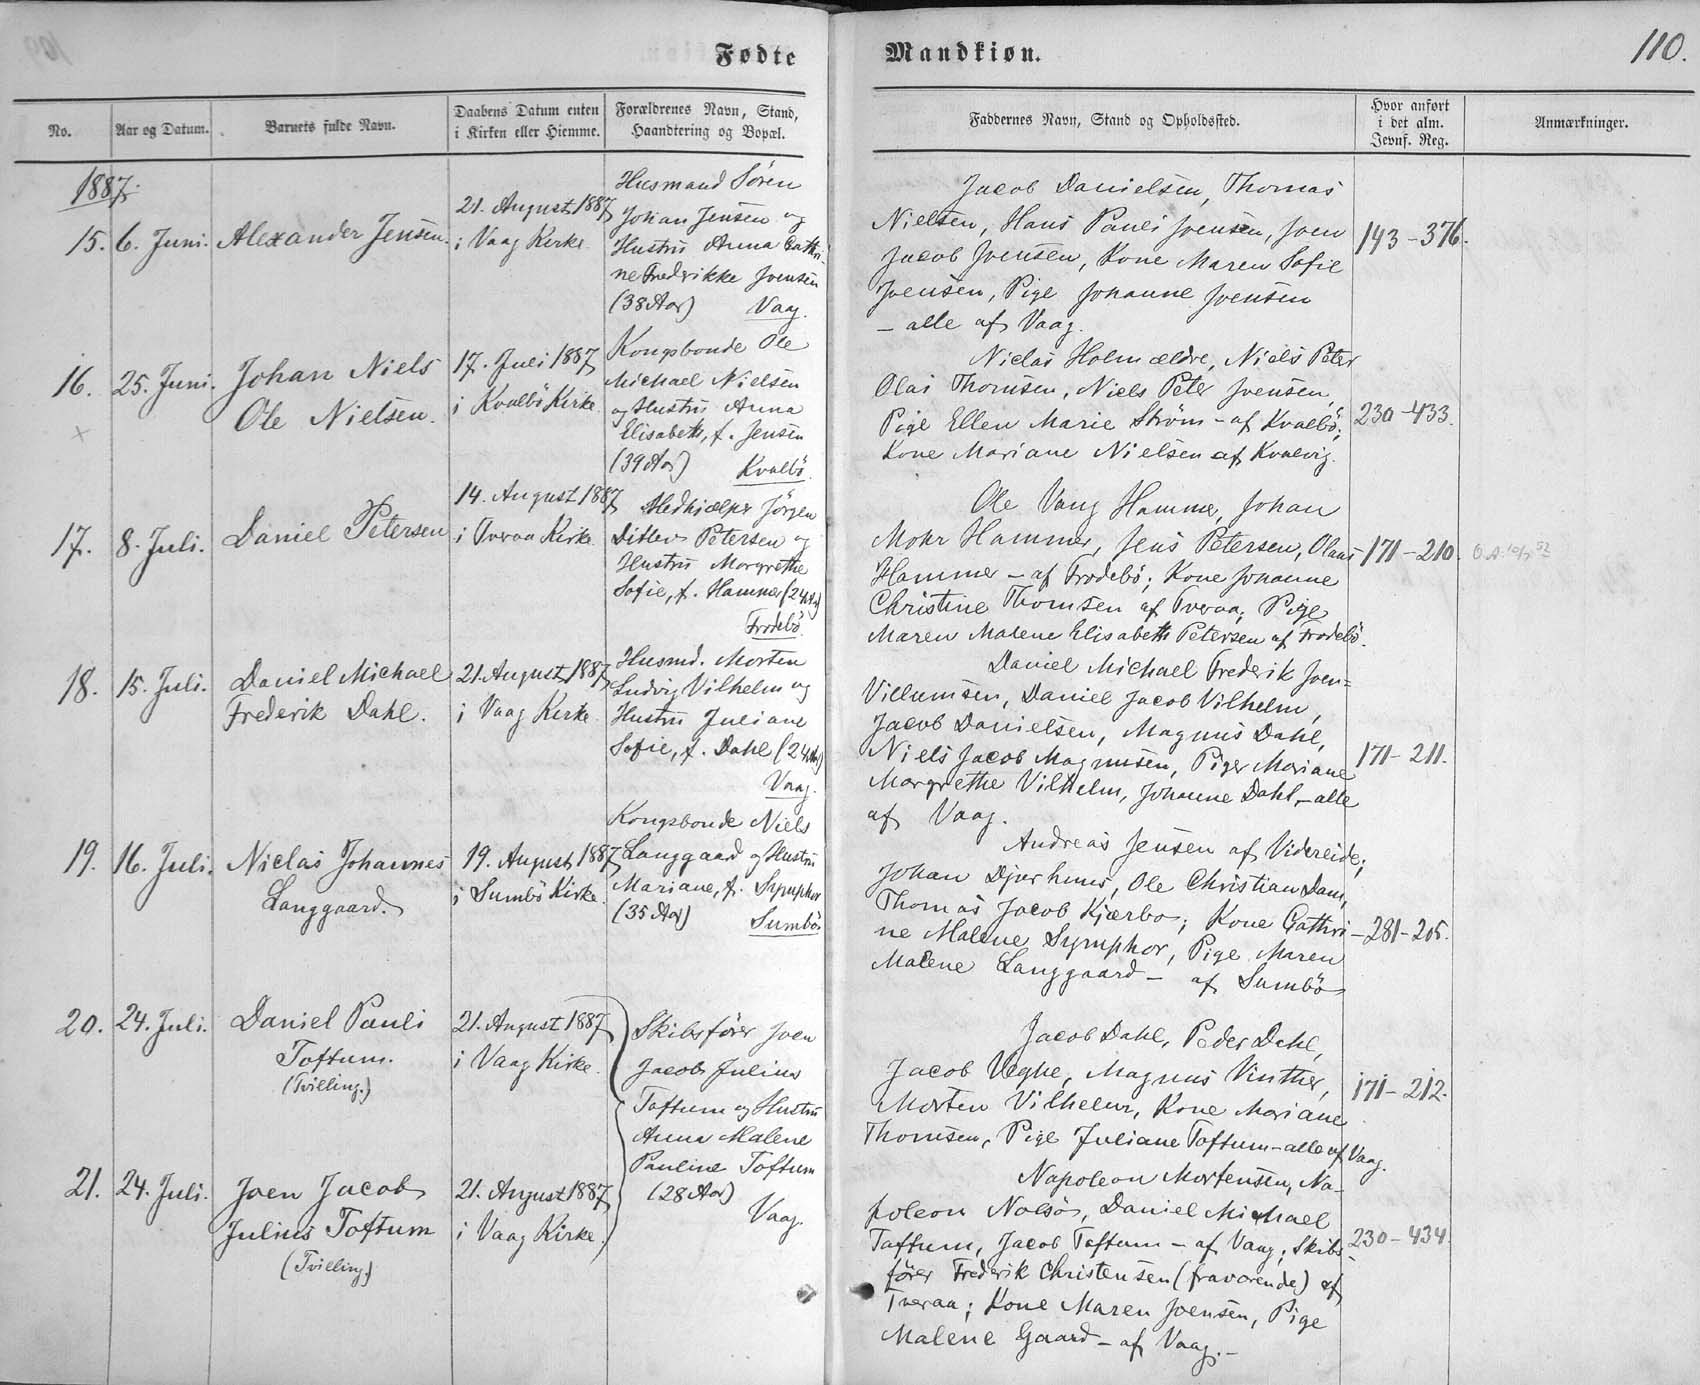 Fødte
No.
Aar og Datum.
Barnets fulde Navn.
Daabens Datum enten
i Kirken eller Hiemme.
Forældrenes Navn, Stand,
Haandtering og Bopæl.
1887.
15.
6. Juni.
Alexander Jensen.
21. August 1887
i Vaag Kirke.
Husmand Sören
Johan Jensen og
Hustru Anna Cathri-
ne Frederikke Joensen
(38 Aar) Vaag.
16.
25. Juni.
Johan Niels
Ole Nielsen.
17. Juli 1887
i Kvalbö Kirke.
Kongsbonde Ole
Michael Nielsen
og Hustru Anna
Elisabeth, f. Jensen
(39 Aar) Kvalbö.
17.
8. Juli.
Daniel Petersen
14. August 1887
i Tveraa Kirke.
Medhjælper Jörgen
Ditlev Petersen og
Hustru Margrethe
Sofie, f. Hammer (24 Aar)
Frodebö.
18.
15. Juli.
Daniel Michael
Frederik Dahl.
21. August 1887
i Vaag Kirke.
Husmd. Morten
Ludvig Vilhelm og
Hustru Juliane
Sofie, f. Dahl (24 Aar)
Vaag.
19.
16. Juli.
Niclas Johannes
Langgaard.
19. August 1887
i Sumbö Kirke.
Kongsbonde Niels
Langgaard og Hustru
Mariane, f. Symphor
(35 Aar) Sumbö.
20.
24. Juli.
Daniel Pauli
Toftum.
(Tvilling.)
21. August 1887
i Vaag Kirke.
Skibsförer Joen
Jacob Julius
Toftum og Hustru
Anna Malene
Pauline Toftum
(28 Aar)
Vaag.
21.
24. Juli.
Joen Jacob
Julius Toftum
(Tvilling)
21. August 1887
i Vaag Kirke.
Mandkiøn.
110.
Faddernes Navn, Stand og Opholdssted.
Hvor anført
i det alm.
Jevnf. Reg.
Anmærkninger.
Jacob Danielsen, Thomas
Nielsen, Hans Pauli Joensen, Joen
Jacob Joensen, Kone Maren Sofie
Joensen, Pige Johanne Joensen
- alle af Vaag.
143-376.
Niclas Holm ældre, Niels Peter
Olai Thomsen, Niels Peter Joensen,
Pige Ellen Marie Ström - af Kvalbö;
Kone Mariane Nielsen af Kvalvig.
230-433.
Ole Vang Hammer, Johan
Mohr Hammer, Jens Petersen, Olaus
Hammer - af Frodebö; Kone Johanne
Christine Thomsen af Tveraa; Pige
Maren Malene Elisabeth Petersen af Frodebö.
171-210.
Daniel Michael Frederik Joen=
Villumsen, Daniel Jacob Vilhelm,
Jacob Danielsen, Magnus Dahl,
Niels Jacob Magnussen, Piger Mariane
Margrethe Vilhelm, Johanne Dahl, - alle
af Vaag.
171-211.
Andreas Jensen af Videreide;
Johan Djurhuus, Ole Christian Dam,
Thomas Jacob Kjærbo; Kone Cathri-
ne Malene Symphor, Pige Maren
Malene Langgaard - af Sumbö
281-205.
Jacob Dahl, Peder Dahl,
Jacob Veghe, Magnus Vinther,
Morten Vilhelm, Kone Mariane
Thomsen, Pige Juliane Toftum - alle af Vaag.
171-212.
Napoleon Mortensen, Na-
poleon Nolsö, Daniel Michael
Toftum, Jacob Toftum - af Vaag; Skibs-
förer Frederik Christensen (fraværende) af
Tveraa; Kone Maren Joensen, Pige
Malene Gaard - af Vaag.-
230-434.